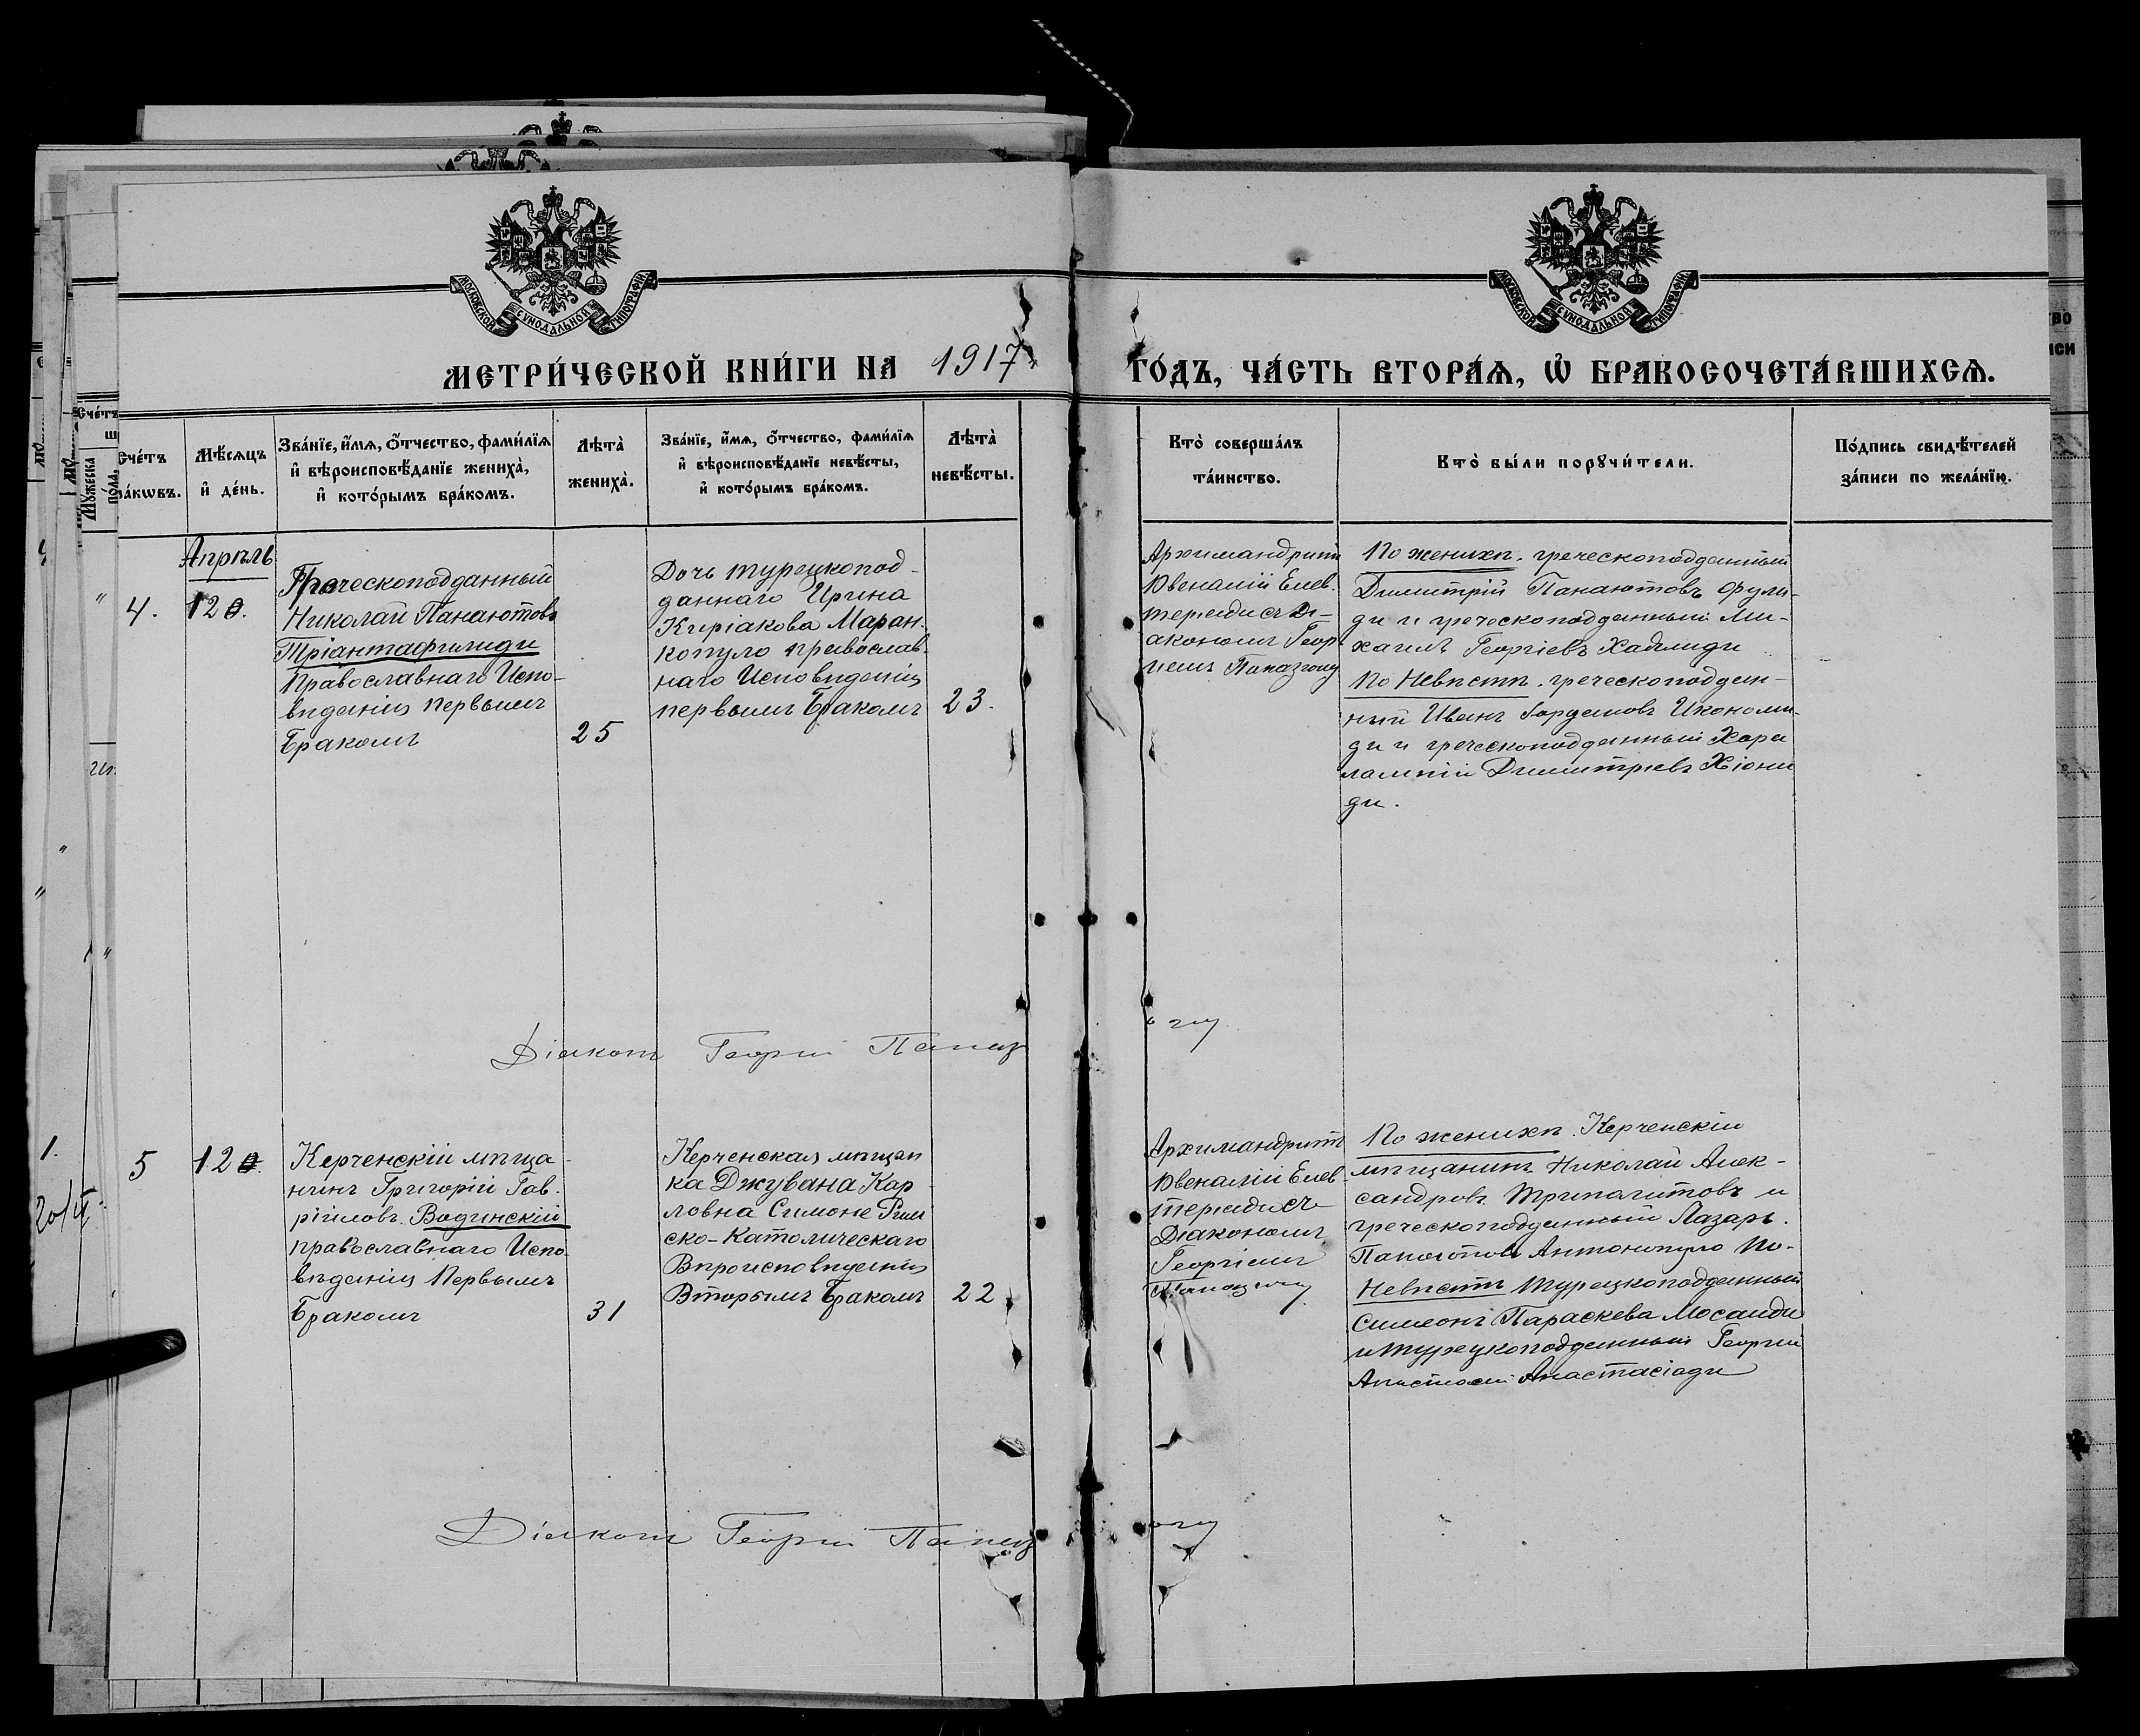 МОСКОВСКОЙ СѴНОДАЛЬНОЙ ТИПОГРАФІИ
МОСКОВСКОЙ СѴНОДАЛЬНОЙ ТИПОГРАФІИ
МЕТРИ́ЧЕСКОЙ КНИ́ГИ НА 1917
ГО́ДЪ, ЧА́СТЬ ВТОРА́Я, Ѡ БРАКОСОЧЕТА́ВШИХСЯ.
Сче́тъ
бра́кѡвъ.
Мѣ́сяцъ
и де́нь.
Зва́нїе, и́мя, о́тчество, фами́лїя
и вѣроисповѣ́данїе жениха̀,
и кото́рымъ бра́комъ.
Лѣта̀
жениха̀.
Зва́нїе, и́мя, о́тчество, фами́лїя
и вѣроисповѣ́данїе невѣ́сты,
и кото́рымъ бра́комъ.
Лѣта̀
невѣ́сты.
Кто̀ соверша́лъ
та́инство.
Кто̀ бы́ли порꙋчи́тели.
По́дпись свидѣ́телей
за́писи по жела́нїю.
Апрѣль
4.
12
Греческоподданный
Николай Панаютовъ
Тріантафилиди
Православнаго Испо-
вѣданія первымъ
Бракомъ
25
Дочь турецкопод-
даннаго Ирина
Киріакова Маран-
копуло православ-
наго Исповѣданія
первымъ Бракомъ
23.
Архимандритъ
Ювеналій Елев-
теріадисъ Ді-
акономъ Геор
гіемъ Папазоглу
По женихѣ. греческоподданный
Димитрій Панаютовъ Фули-
ди и греческоподданный Ми-
хаилъ Георгіевъ Хаджиди
По Невѣстѣ. греческоподдан-
ный Иванъ Іордановъ Икономи-
ди и греческоподданный Хара
лампій Димитріевъ Хіони
ди.
Діаконъ Георгій Папаз
оглу
5
12
Керченскій мѣща-
нинъ Григорій Гав-
ріиловъ Водинскій
православнаго Испо-
вѣданія Первымъ
Бракомъ
31
Керченская мѣщан
ка Джувана Кар
ловна Симоне Рим
ско-Католическаго
Вѣроисповѣданія
Вторымъ Бракомъ
22
Архимандритъ
Ювеналій Елев-
теріадисъ
Діакономъ
Георгіемъ
Папазоглу
По женихѣ. Керченскій
мѣщанинъ Николай Алек-
сандровъ Трипалитовъ и
греческоподданный Лазарь
Панаютовъ Антонопуло По-
Невѣстѣ Турецкоподданный
Симеонъ Параскева Мосаиди
и Турецкоподданный Георгій
Анастасіади
Діаконъ Георгій Папаз
оглу